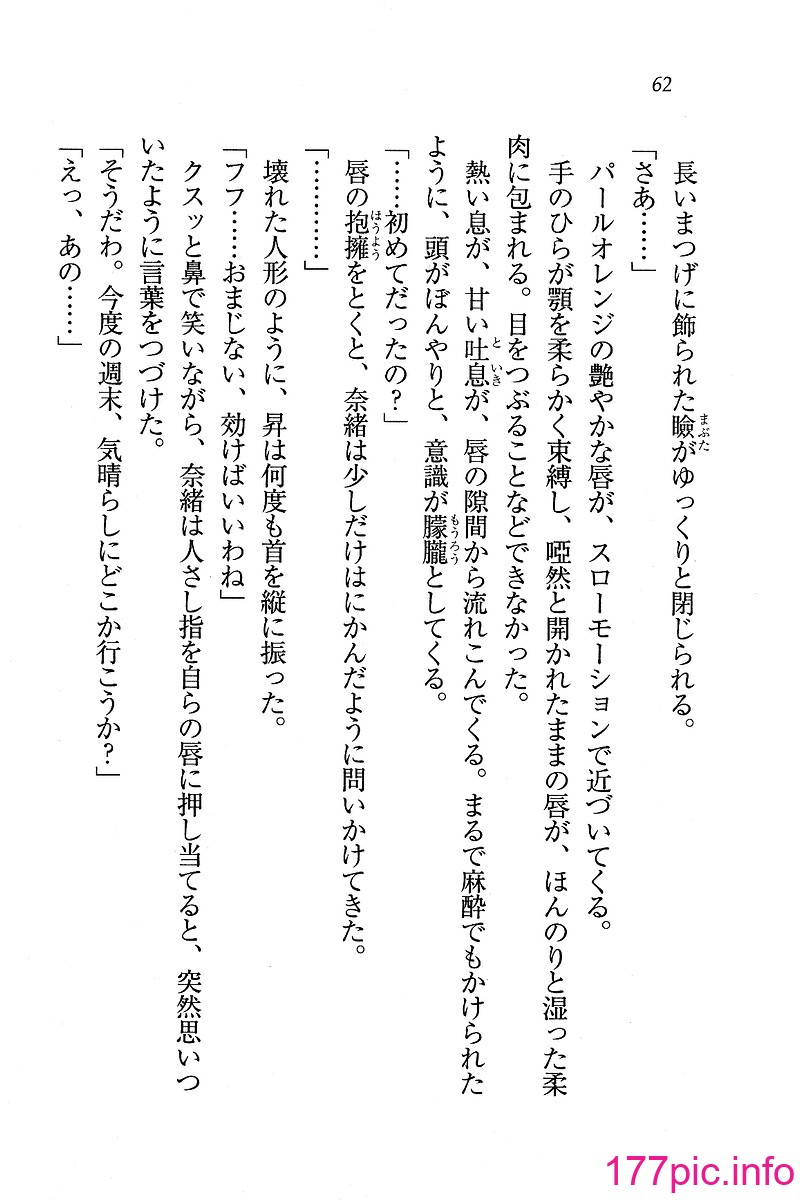 62
長いまつげに飾られた瞼がゆっくりと閉じられる。
「さあ……」
パールオレンジの艶やかな唇が、スローモーションで近づいてくる。
手のひらが顎を柔らかく束縛し、啞然と開かれたままの唇が、ほんのりと湿った柔
肉に包まれる。目をつぶることなどできなかった。
熱い息が、甘い吐息が、唇の隙間から流れこんでくる。まるで麻酔でもかけられた
ように、頭がぼんやりと、意識が朦朧としてくる。
「……初めてだったの？」
唇の抱擁をとくと、奈緒は少しだけはにかんだように問いかけてきた。
「…………」
壊れた人形のように、昇は何度も首を縦に振った。
「フフ……おまじない、効けばいいわね」
クスッと鼻で笑いながら、奈緒は人さし指を自らの唇に押し当てると、突然思いつ
いたように言葉をつづけた。
「そうだわ。今度の週末、気晴らしにどこか行こうか？」
「えっ、あの……」
177pic.info